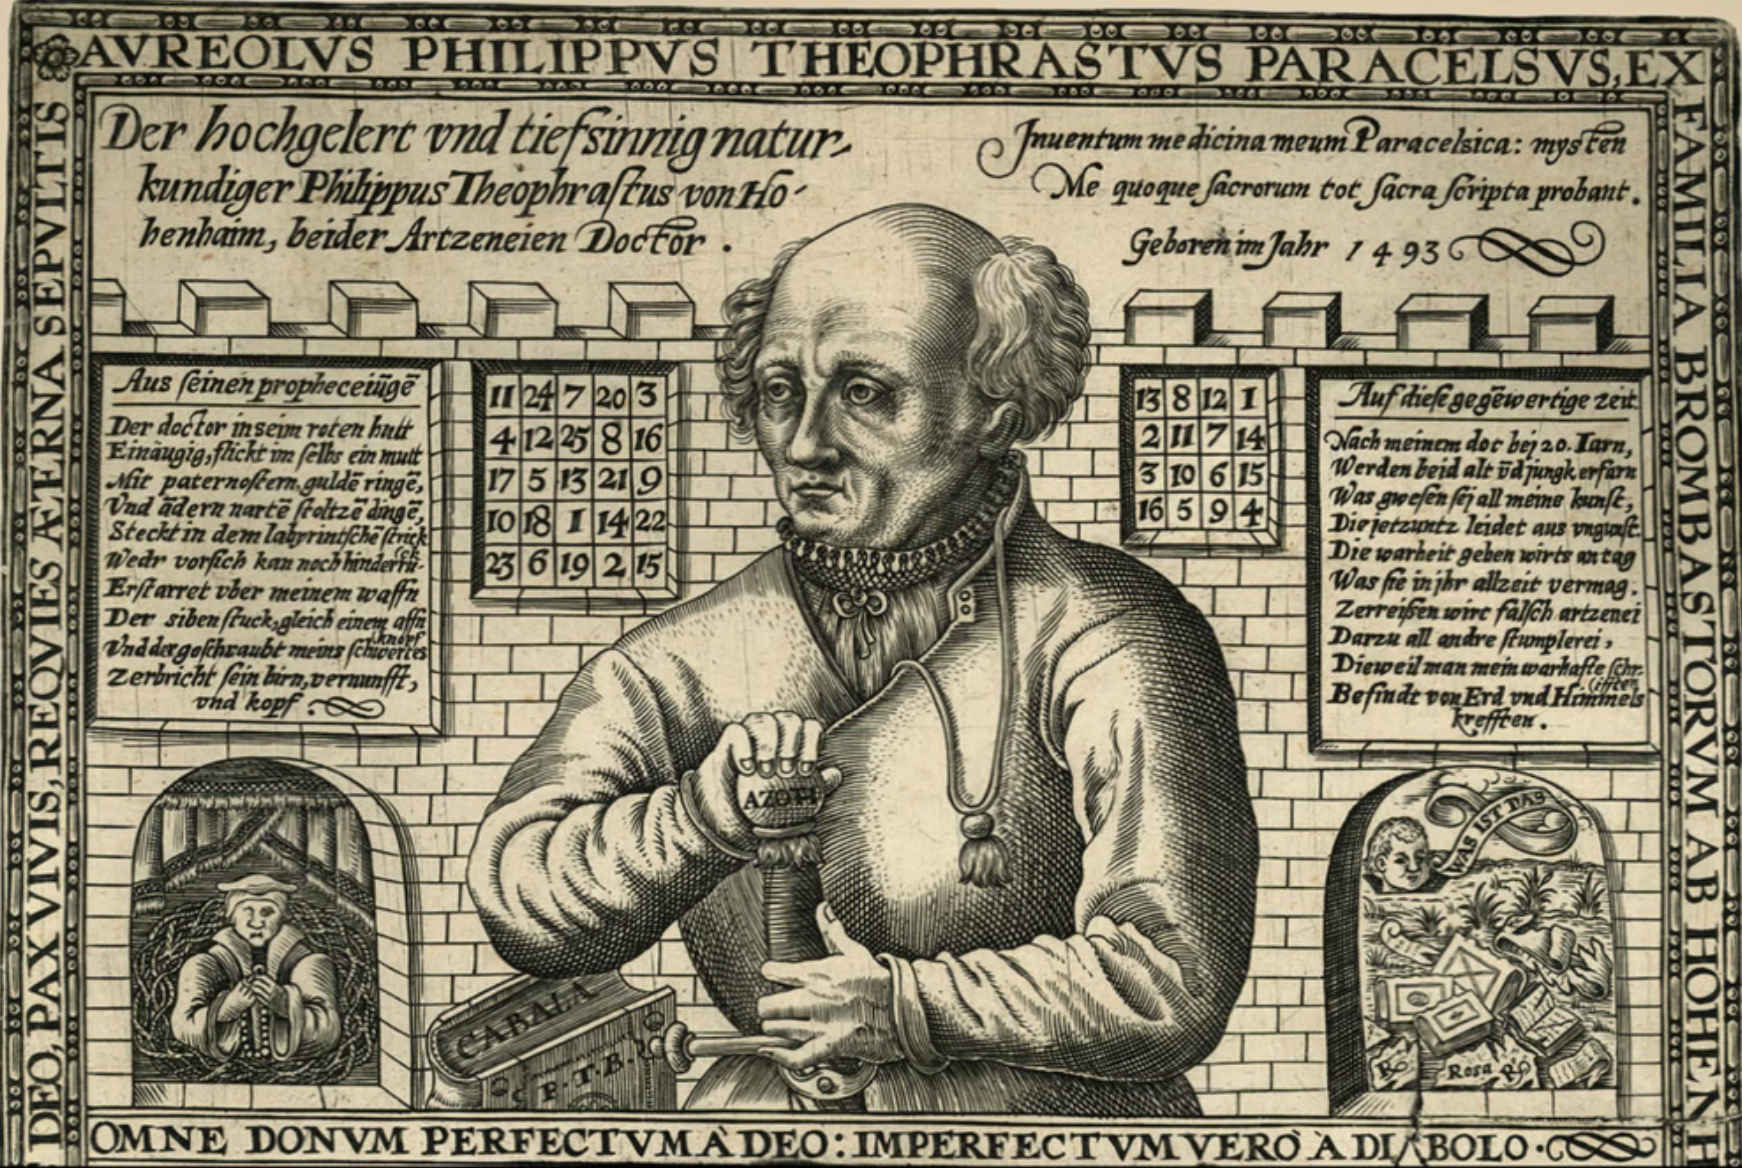 AVREOLVS PHILIPPVS THEOPHRASTVS PARACELSVS, EX
FAMILIA BROMBASTORVM AB HOHEN H
DEO, PAX VIVIS, REQVIES ÆTERNA SEPVLTIS
Der hochgelert vnd tiefsinnig natur-
kundiger Philippus Theophrastus von Ho-
henhaim, beider Artzeneien Doctor .
Inuentum medicina meum Paracelsica: mysten
Me quoque sacrorum tot sacra scripta probant .
Geboren im Jahr 1493
Aus seinen propheceiūgē
Der doctor in seim roten hutt
Einäugig, flickt im selbs ein mutt
Mit paternostern, guldē ringē,
Vnd ādern nartē stoltzē dingē,
Steckt in dem labyrintschē strick
Wedr vorsich kan noch hinderrü-
ck
Erstarret vber meinem waffn
Der siben stuck, gleich einem affn
Vnd der geschraubt meins schwertes
knopf
Zerbricht sein hirn, vernunfft,
vnd kopf .
11 24 7 20 3
4 12 25 8 16
17 5 13 21 9
10 18 1 14 22
23 6 19 2 15
13 8 12 1
2 11 7 14
3 10 6 15
16 5 9 4
Auf diese gegēwertige zeit
Nach meinem dot bej 20. Iarn,
Werden beid alt v̄d jungk erfarn
Was gwesen sej all meine kunst,
Die jetzuntz leidet aus vngunst.
Die warheit geben wirts an tag
Was sie in jhr allzeit vermag.
Zerreißen wirt falsch artzenei
Darzu all andre stumplerei,
Dieweil man mein warhafte schr-
ifften
Befindt von Erd vnd Himmels
krefften .
AZOTH
WAS IST DAS
CABALA
C P.T.B.
R
Rosa
R
OMNE DONVM PERFECTVM À DEO: IMPERFECTVM VERÒ À DIABOLO ·